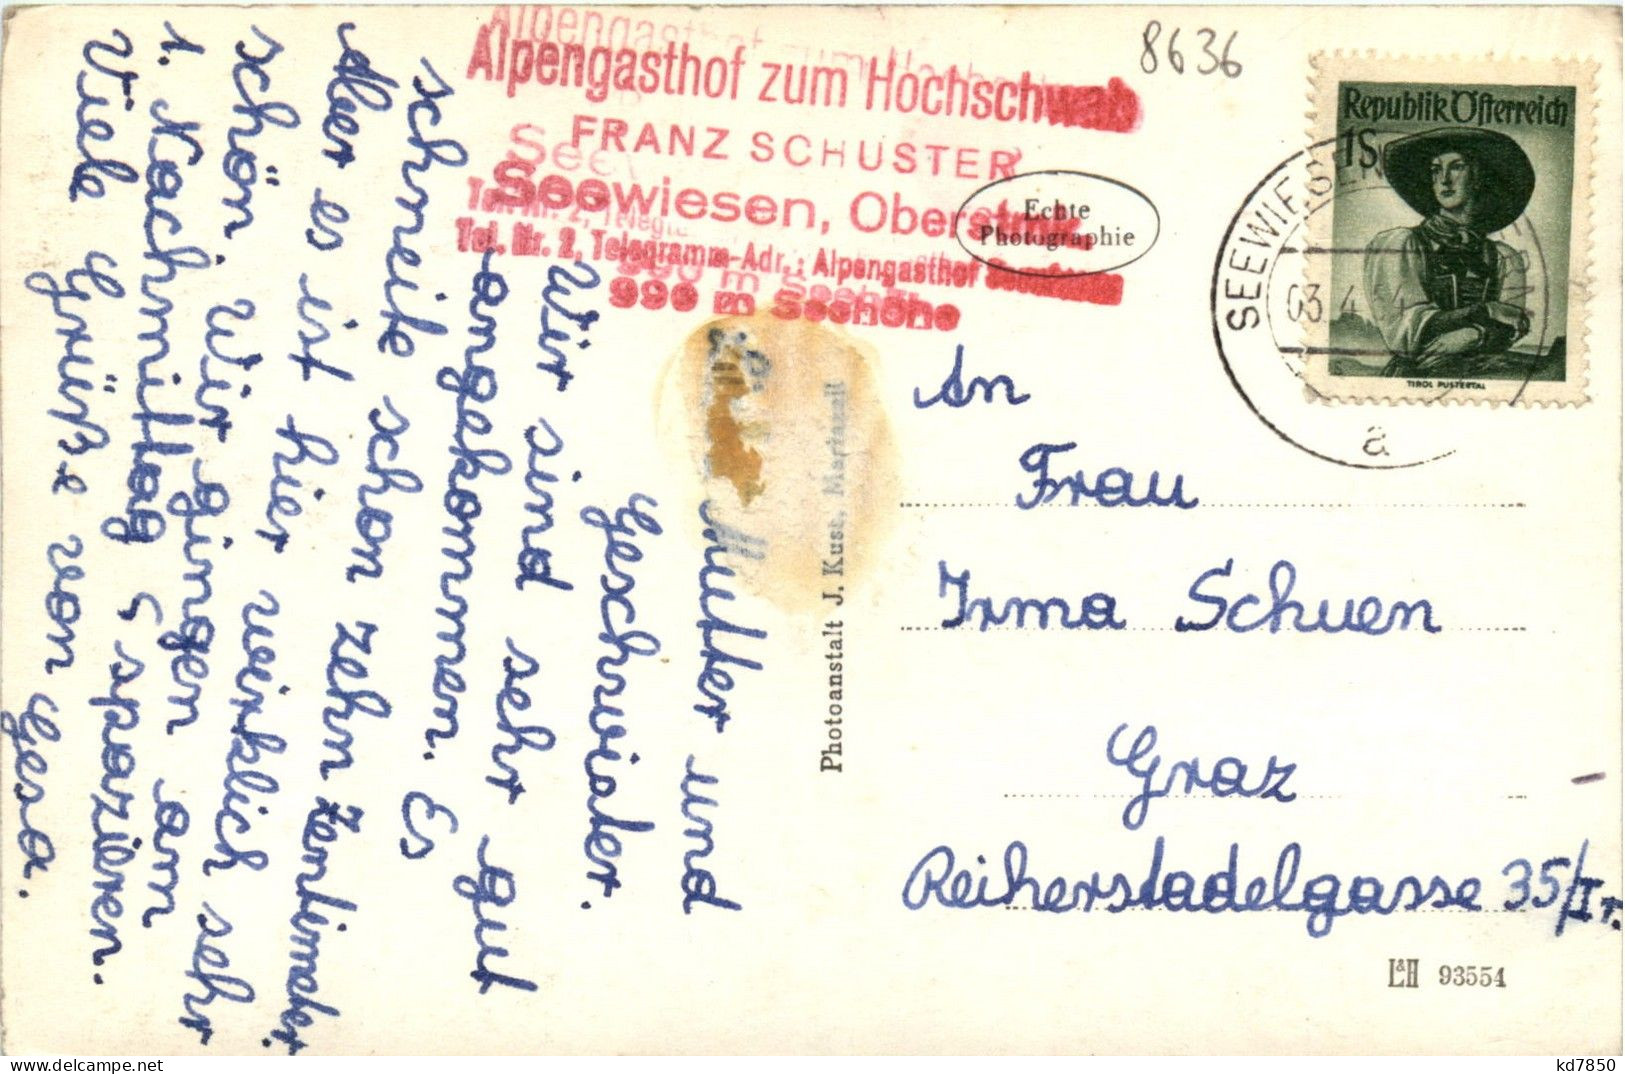 8636
Alpengasthof zum Hochschwab
FRANZ SCHUSTER
Seewiesen, Oberstmk.
Tel. Nr. 2, Telegramm-Adr.: Alpengasthof Seewiesen
996 m Seehöhe
Echte
Photographie
Republik Österreich
1S
TIROL PUSTERTAL
SEEWIESEN
03.4.54
a
Mutter und
Geschwister.
Wir sind sehr gut
angekommen. Es
schneite schon zehn Zentimeter.
Aber es ist hier wirklich sehr
schön. Wir gingen am
1. Nachmittag spazieren.
Viele Grüße von Gesa.
Photoanstalt J. Kuss, Mariazell
An
Frau
Irma Schuen
Graz
Reiherstadelgasse 35/II r.
L&H 93554
kd7850